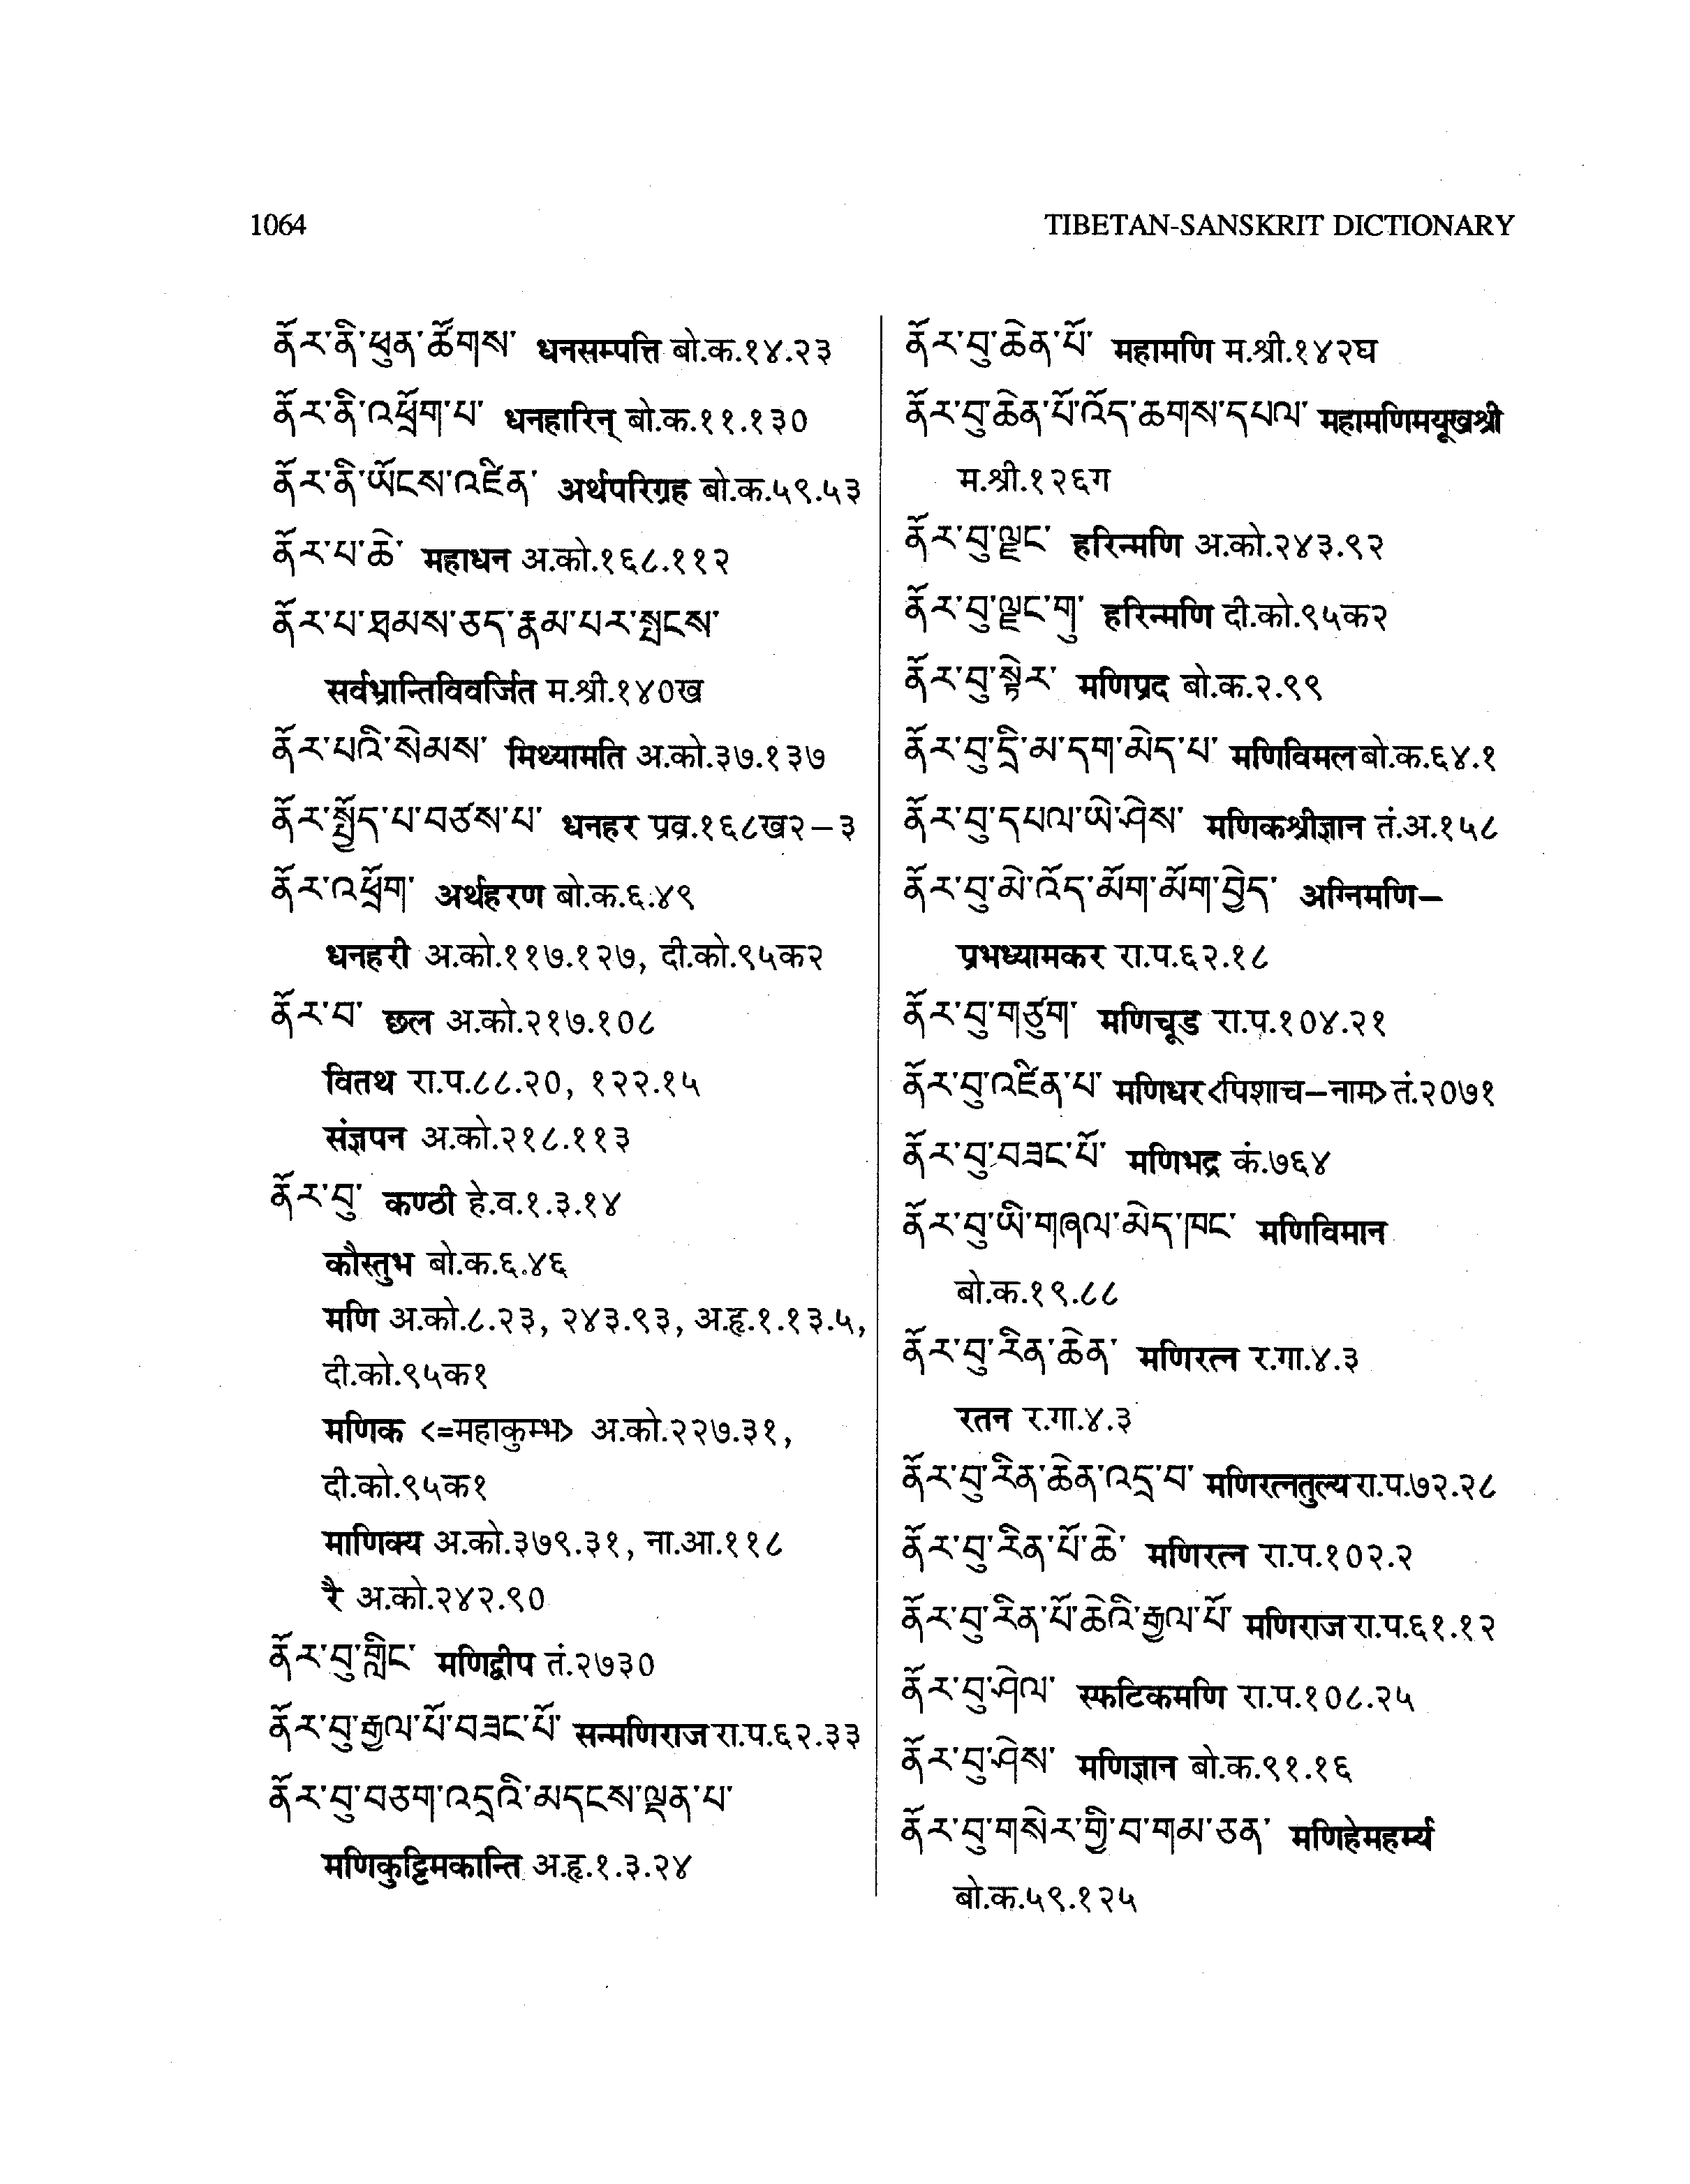 1064
TIBETAN-SANSKRIT DICTIONARY
ནོར་ནི་ཕུན་ཚོགས་ धनसम्पत्ति बो.क.१४.२३
ནོར་ནི་འཕྲོག་པ་ धनहारिन् बो.क.११.१३०
ནོར་ནི་ཡོངས་འཛིན་ अर्थपरिग्रह बो.क.५९.५३
ནོར་པ་ཆེ་ महाधन अ.को.१६८.११२
ནོར་པ་ཐམས་ཅད་རྣམ་པར་སྤངས་
सर्वभ्रान्तिविवर्जित म.श्री.१४०ख
ནོར་པའི་སེམས་ मिथ्यामति अ.को.३७.१३७
ནོར་སྤྱོད་པ་བཙས་པ་ धनहर प्रव्र.१६८ख२–३
ནོར་འཕྲོག་ अर्थहरण बो.क.६.४९
धनहरी अ.को.११७.१२७, दी.को.९५क२
ནོར་བ་ छल अ.को.२१७.१०८
वितथ रा.प.८८.२०, १२२.१५
संज्ञपन अ.को.२१८.११३
ནོར་བུ་ कण्ठी हे.व.१.३.१४
कौस्तुभ बो.क.६.४६
मणि अ.को.८.२३, २४३.९३, अ.हृ.१.१३.५,
दी.को.९५क१
मणिक <=महाकुम्भ> अ.को.२२७.३१,
दी.को.९५क१
माणिक्य अ.को.३७९.३१, ना.आ.११८
रै अ.को.२४२.९०
ནོར་བུ་གླིང་ मणिद्वीप तं.२७३०
ནོར་བུ་རྒྱལ་པོ་བཟང་པོ་ सन्मणिराज रा.प.६२.३३
ནོར་བུ་བཅག་འདྲའི་མདངས་ལྡན་པ་
मणिकुट्टिमकान्ति अ.हृ.१.३.२४
ནོར་བུ་ཆེན་པོ་ महामणि म.श्री.१४२घ
ནོར་བུ་ཆེན་པོ་འོད་ཆགས་དཔལ་ महामणिमयूखश्री
म.श्री.१२६ग
ནོར་བུ་ལྗང་ हरिन्मणि अ.को.२४३.९२
ནོར་བུ་ལྗང་གུ་ हरिन्मणि दी.को.९५क२
ནོར་བུ་སྟེར་ मणिप्रद बो.क.२.९९
ནོར་བུ་དྲི་མ་དག་མེད་པ་ मणिविमल बो.क.६४.१
ནོར་བུ་དཔལ་ཡེ་ཤེས་ मणिकश्रीज्ञान तं.अ.१५८
ནོར་བུ་མེ་འོད་མོག་མོག་བྱེད་ अग्निमणि–
प्रभध्यामकर रा.प.६२.१८
ནོར་བུ་གཙུག་ मणिचूड रा.प.१०४.२१
ནོར་བུ་འཛིན་པ་ मणिधर<पिशाच–नाम> तं.२०७१
ནོར་བུ་བཟང་པོ་ मणिभद्र कं.७६४
ནོར་བུ་ཡི་གཞལ་མེད་ཁང་ मणिविमान
बो.क.१९.८८
ནོར་བུ་རིན་ཆེན་ मणिरत्न र.गा.४.३
रतन र.गा.४.३
ནོར་བུ་རིན་ཆེན་འདྲ་བ་ मणिरत्नतुल्य रा.प.७२.२८
ནོར་བུ་རིན་པོ་ཆེ་ मणिरत्न रा.प.१०२.२
ནོར་བུ་རིན་པོ་ཆེའི་རྒྱལ་པོ་ मणिराज रा.प.६१.१२
ནོར་བུ་ཤེལ་ स्फटिकमणि रा.प.१०८.२५
ནོར་བུ་ཤེས་ मणिज्ञान बो.क.९१.१६
ནོར་བུ་གསེར་གྱི་བ་གམ་ཅན་ मणिहेमहर्म्य
बो.क.५९.१२५